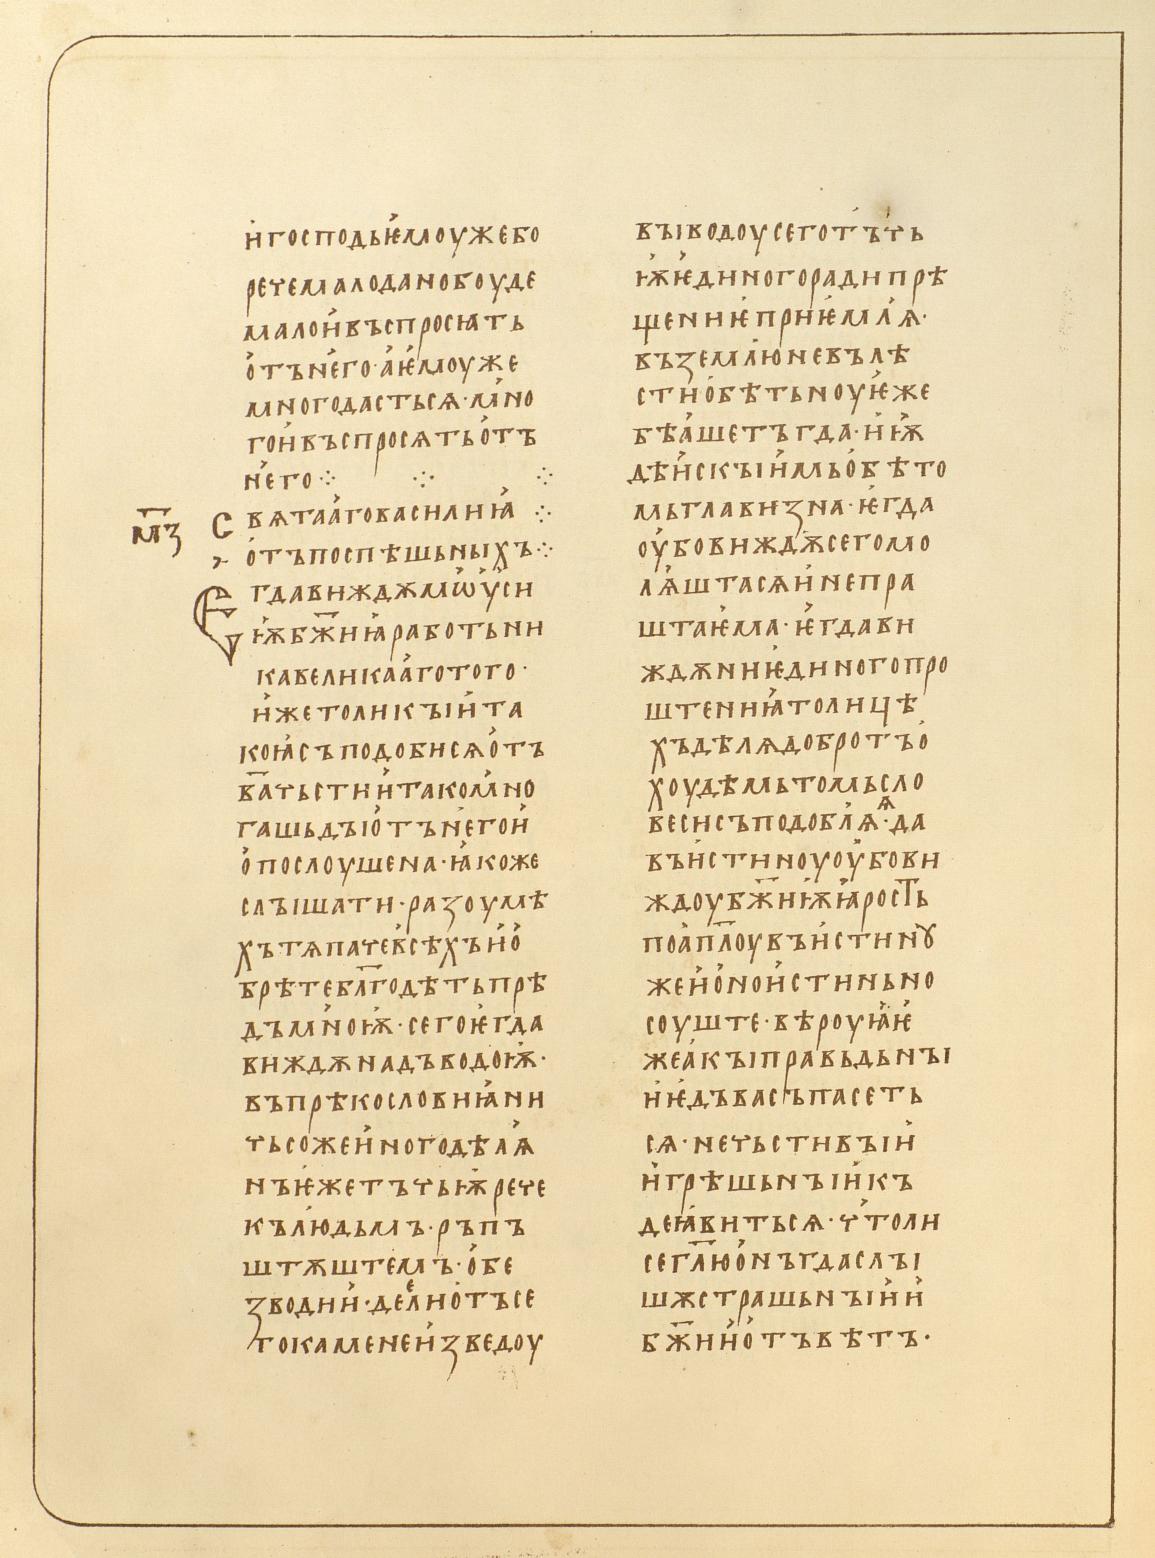 и҆господьѥ҆моуѫжебо
речемалоданобоуде
малои҆въспросѩть
о҆тъне҆го·а҆ѥ҆моуже
многодастьсѧ·м҆но
гои҆въспросѧтьо҆тъ
не҆го⁘ ⁘ ⁘
м҃з свѧтааговасилиꙗ҆ ⁘
о҆тъпоспѣшьныхъ⁘
Єгдавиждѫмѡ҆ѵ҆си
ѭ҆бж҃иꙗ҆работьни
кавеликаа҆готого·
и҆жетоликъіи҆та
коꙗ҆съподобисѧо҆тъ
ба҃чьстии҆такомъно
гашьдъіо҆тъне҆гои҆
о҆послоушена·ꙗ҆коже
слъішати·разоумѣ
хътѧпачевьсѣхъи҆о҆
брѣтебл҃годѣтьпрѣ
дъм҆ноѭ҆·сегоѥ҆гда
виждѫнадъводоѭ҆·
въпрѣкословиꙗ҆ни
чьсожеи҆ногодѣлꙗ҆
нъѥ҆жетъчьѭ҆рече
кълю҆дьмъ·ръпъ
штѫштемъ·о҆бе
зводии҆·деѥлио҆тъсе
гокаменеи҆зведоу
въіводоусеготъчь
ѭ҆ѥ҆диногорадипрѣ
щениѥ҆приѥ҆млѧ҆·
въземлю҆невълѣ
стио҆бѣтьноуѥ҆же
бѣа҆шетъгда·и҆ѭ҆
дѣи҆скъіи҆мьо҆бѣто
мьглавизна·ѥ҆гда
оу҆бовиждѫсегомо
лѧ҆штасѧи҆непра
штаѥ҆ма·ѥ҆гдави
ждѫниѥ҆диногопро
штениꙗ҆толицѣ
хъдѣлѧдобротъо҆
хоудѣмьтомьсло
весисъподоблѧ҆ѧ·да
въи҆стиноуоу҆бови
ждоубж҃иѭ҆ꙗ҆рость
поа҆пл҃оувъи҆стинꙋ
жеи҆о҆нои҆стиньно
соуште·вѣроуꙗ҆ѥ҆
жеа҆къіправьдьнъі
и҆ѥ҆двасъпасеть
сѧ·нечьстивъіи҆
и҆грѣшьнъіи҆къ
деꙗ҆витьсѧ·чътоли
сегл҃юо҆нъгдаслъі
шѫстрашьнъіи҆и҆
бж҃ии҆о҆тъвѣтъ·